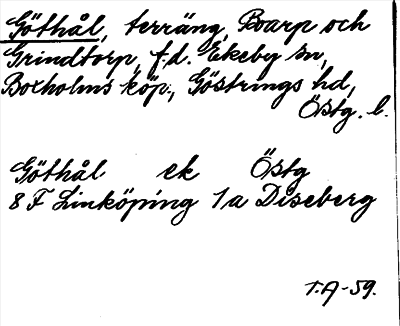 Göthål, terräng, Boarp och
Grindtorp, f.d. Ekeby sn,
Boxholms köp., Göstrings hd,
Östg. l.
Göthål ek Östg
8 F Linköping 1a Diseberg
T.A-59.